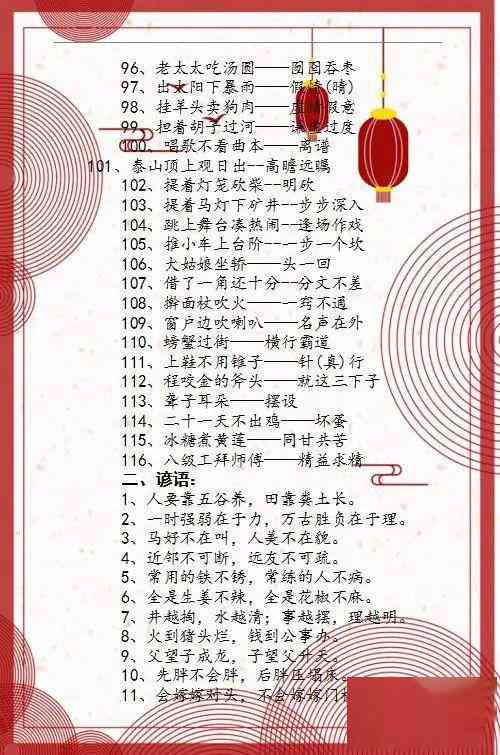 96、老太太吃汤圆——囫囵吞枣
97、出太阳下暴雨——假情(晴)
98、挂羊头卖狗肉——虚情假意
99、担着胡子过河——谦虚过度
100、唱歌不看曲本——离谱
101、泰山顶上观日出--高瞻远瞩
102、提着灯笼砍柴--明砍
103、提着马灯下矿井--步步深入
104、跳上舞台凑热闹--逢场作戏
105、推小车上台阶--一步一个坎
106、大姑娘坐轿——头一回
107、借了一角还十分--分文不差
108、擀面杖吹火——一窍不通
109、窗户边吹喇叭——名声在外
110、螃蟹过街——横行霸道
111、上鞋不用锥子——针(真)行
112、程咬金的斧头——就这三下子
113、聋子耳朵——摆设
114、二十一天不出鸡——坏蛋
115、冰糖煮黄莲——同甘共苦
116、八级工拜师傅——精益求精
二、谚语:
1、人要靠五谷养，田靠粪土长。
2、一时强弱在于力，万古胜负在于理。
3、马好不在叫，人美不在貌。
4、近邻不可断，远友不可疏。
5、常用的铁不锈，常练的人不病。
6、全是生姜不辣，全是花椒不麻。
7、井越掏，水越清；事越摆，理越明。
8、火到猪头烂，钱到公事办。
9、父望子成龙，子望父升天。
10、先胖不会胖，后胖压塌床。
11、会嫁嫁对头，不会嫁嫁门